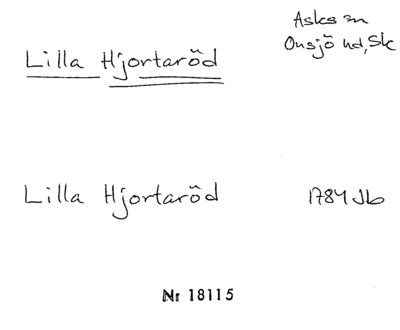 Asks sn
Onsjö hd, Sk
Lilla Hjortaröd
Lilla Hjortaröd
1784 Jb
Nr 18115